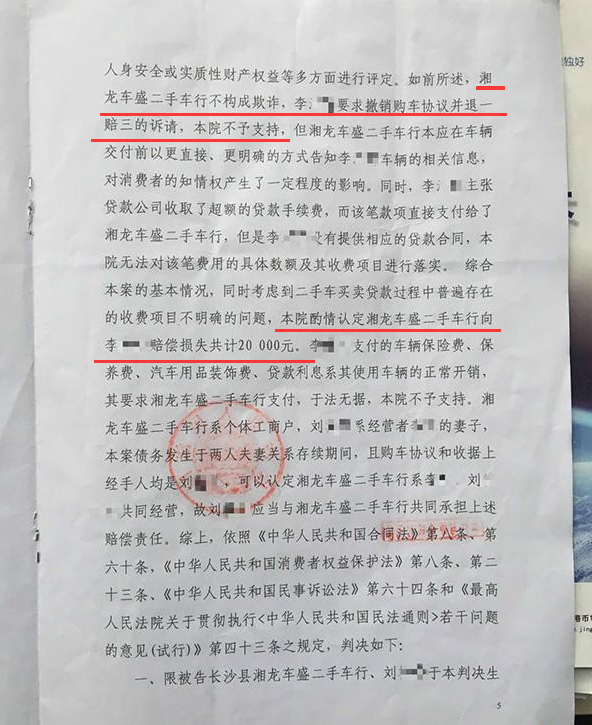 人身安全或实质性财产权益等多方面进行评定。如前所述,湘
龙车盛二手车行不构成欺诈,李 要求撤销购车协议并退一
赔三的诉请,本院不予支持,但湘龙车盛二手车行本应在车辆
交付前以更直接、更明确的方式告知李 车辆的相关信息,
对消费者的知情权产生了一定程度的影响。同时,李 主张
贷款公司收取了超额的贷款手续费,而该笔款项直接支付给了
湘龙车盛二手车行,但是李 没有提供相应的贷款合同,本
院无法对该笔费用的具体数额及其收费项目进行落实。 综合
本案的基本情况,同时考虑到二手车买卖贷款过程中普遍存在
的收费项目不明确的问题,本院酌情认定湘龙车盛二手车行向
李 赔偿损失共计20 000元。李 支付的车辆保险费、保
养费、汽车用品装饰费、贷款利息系其使用车辆的正常开销,
其要求湘龙车盛二手车行支付,于法无据,本院不予支持。湘
龙车盛二手车行系个体工商户,刘 系经营者 的妻子,
本案债务发生于两人夫妻关系存续期间,且购车协议和收据上
经手人均是刘 ,可以认定湘龙车盛二手车行系李 、刘
共同经营,故刘 应当与湘龙车盛二手车行共同承担上述
赔偿责任。综上,依照《中华人民共和国合同法》第八条、第
六十条,《中华人民共和国消费者权益保护法》第八条、第二
十三条、《中华人民共和国民事诉讼法》第六十四条和《最高
人民法院关于贯彻执行<中华人民共和国民法通则>若干问题
的意见(试行)》第四十三条之规定,判决如下:
一、限被告长沙县湘龙车盛二手车行、刘 于本判决生
5
独好